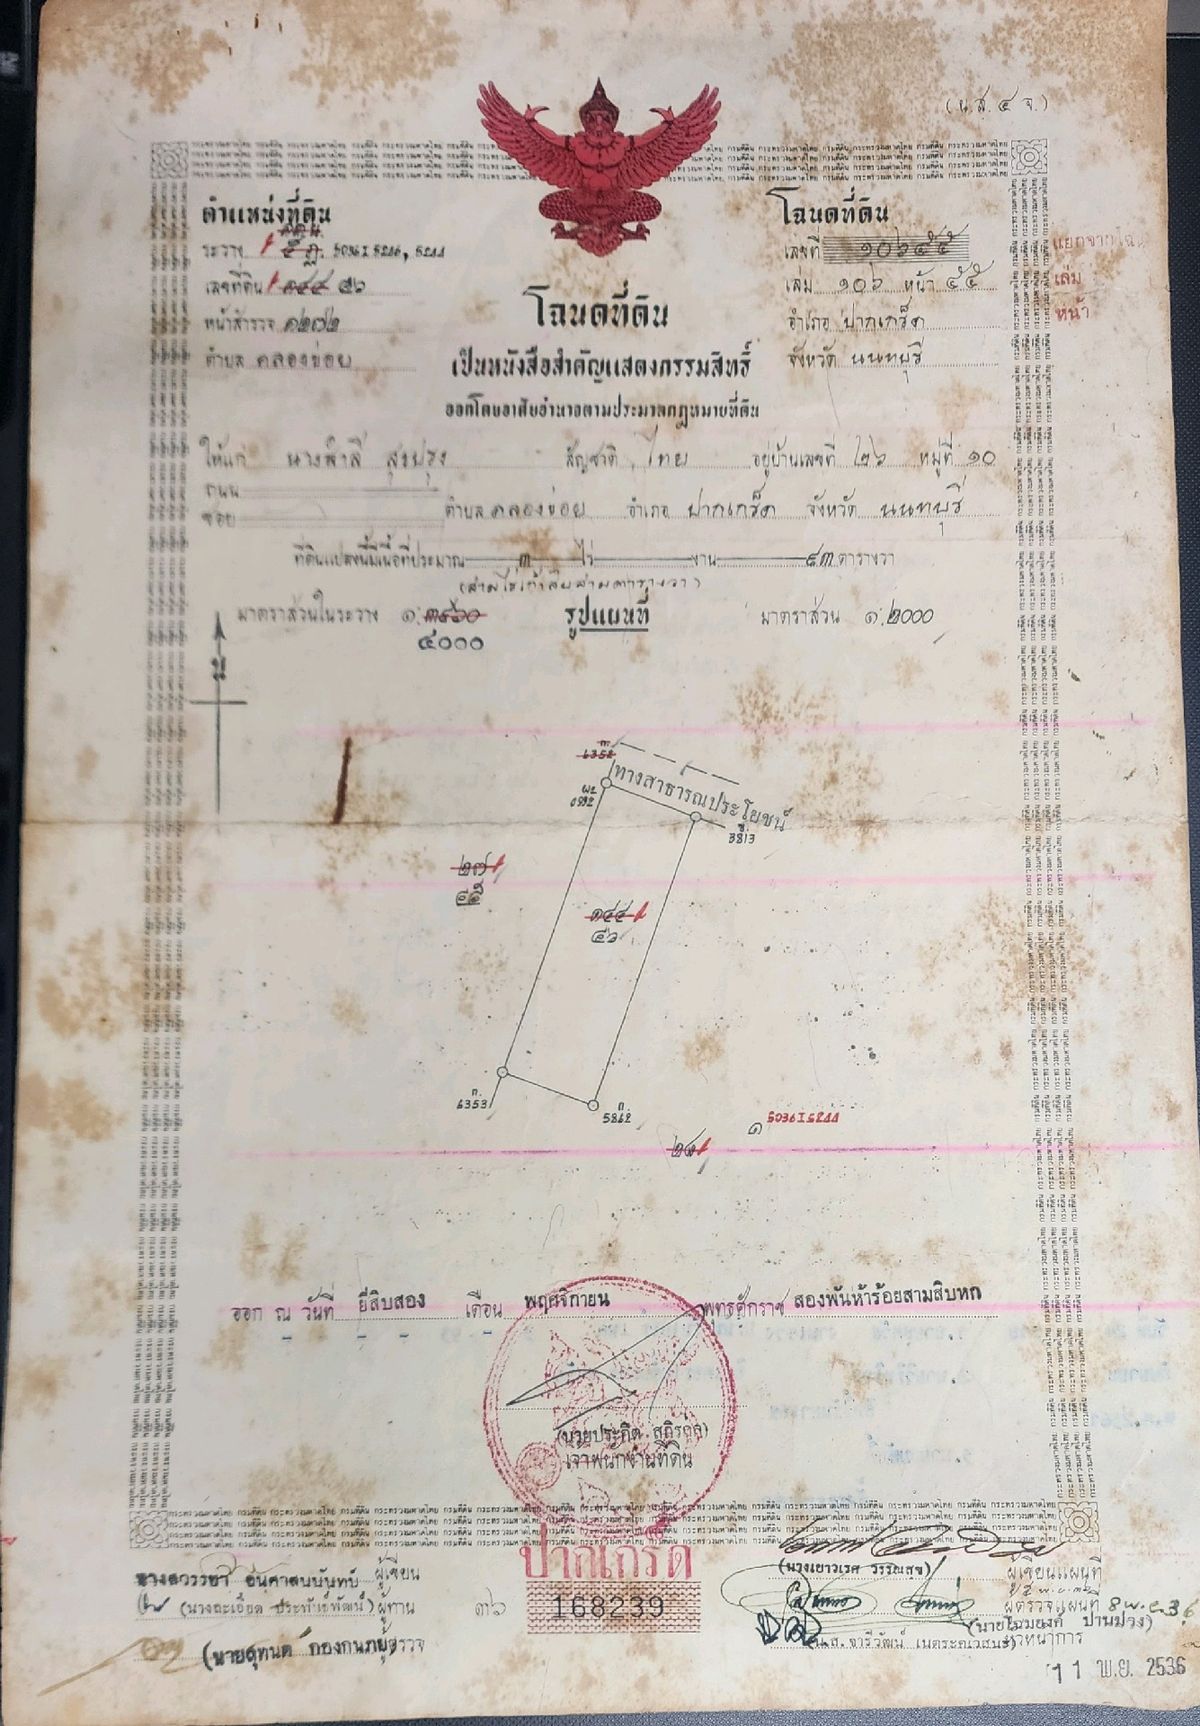 (น.ส. ๔ จ.)
ตำแหน่งที่ดิน
ระวาง 5036 I 5246, 5244
เลขที่ดิน ๑๔๔ ๕๖
หน้าสำรวจ ๓๒๗๒
ตำบล คลองข่อย
โฉนดที่ดิน
เลขที่ ๑๐๖๕๕
เล่ม ๑๐๖ หน้า ๕๕
อำเภอ ปากเกร็ด
จังหวัด นนทบุรี
แยกจากโฉน
เล่ม
หน้า
โฉนดที่ดิน
เป็นหนังสือสำคัญแสดงกรรมสิทธิ์
ออกโดยอาศัยอำนาจตามประมวลกฎหมายที่ดิน
ให้แก่ นางสำลี สัญชาติ ไทย อยู่บ้านเลขที่ ๒๖ หมู่ที่ ๑๐
ถนน
ซอย ตำบล คลองข่อย อำเภอ ปากเกร็ด จังหวัด นนทบุรี
ที่ดินแปลงนี้มีเนื้อที่ประมาณ ๓ ไร่ งาน ๙๓ ตารางวา
(สามไร่เก้าสิบสามตารางวา)
มาตราส่วนในระวาง ๑:๓๕๖๐ รูปแผนที่ มาตราส่วน ๑:๒๐๐๐
๔๐๐๐
น
ก
6352
ทางสาธารณประโยชน์
0892
3813
๒๗
๑๔๔
๕๖
ก
6353
ก
5862
๒๘
๑
ออก ณ วันที่ ยี่สิบสอง เดือน พฤศจิกายน พุทธศักราช สองพันห้าร้อยสามสิบหก
(นายประกิต)
เจ้าพนักงานที่ดิน
ปากเกร็ด
168239
๓๖
ผู้เขียน
(นางละเอียด ประพันธ์พัฒน์) ผู้ทาน
(นายสุทนต์) ผู้ตรวจ
(นางเยาวเรศ วรรณสุข) ผู้เขียนแผนที่
ผู้ตรวจแผนที่ 8 พ.ย. 36
(นายโฉมยงค์ ปานปวง)
(น.ส. จารีวัฒน์)
11 พ.ย. 2536